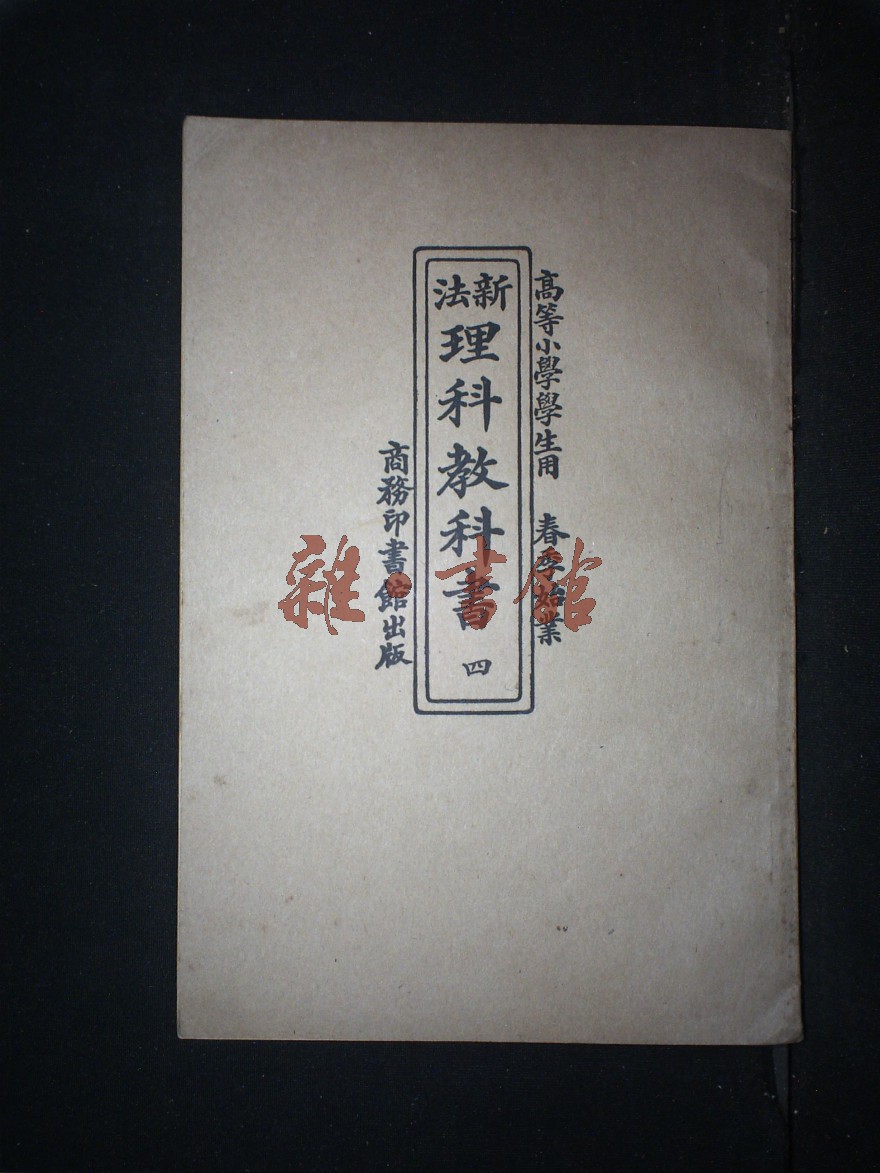 高等小學學生用 春季始業
新法
理科教科書 四
商務印書館出版
雜·書館